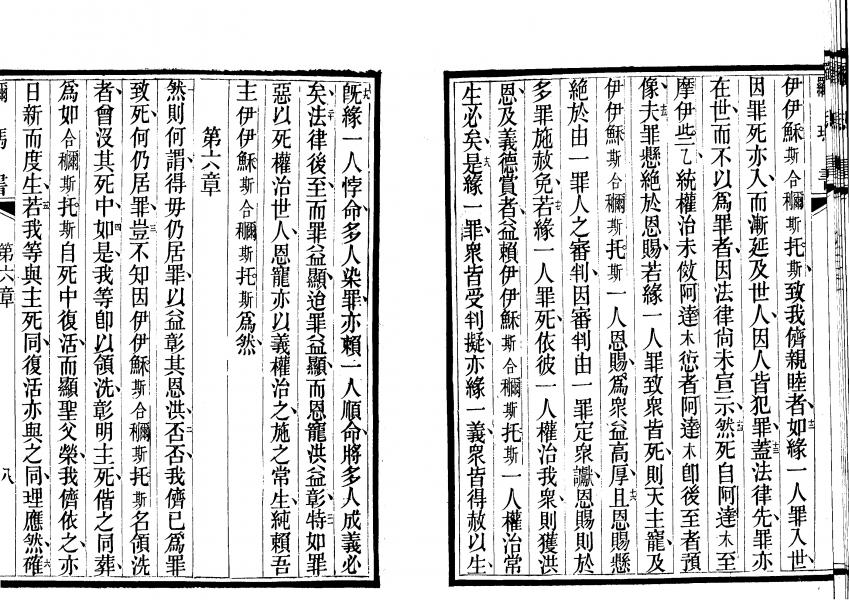 羅瑪書
伊伊穌斯合𥡴斯托斯致我儕親睦者如緣一人罪入世
因罪死亦入而漸延及世人因人皆犯罪蓋法律先罪亦
在世而不以為罪者因法律尚未宣示然死自阿達木至
摩伊些乙統權治未傚阿達木愆者阿達木卽後至者預
像夫罪懸絶於恩賜若緣一人罪致衆皆死則天主寵及
伊伊穌斯合𥡴斯托斯一人恩賜為衆益高厚且恩賜懸
絶於由一罪人之審判因審判由一罪定衆讞恩賜則於
多罪施赦免若緣一人罪死依彼一人權治我衆則獲洪
恩及義德賞者益賴伊伊穌斯合𥡴斯托斯一人權治常
生必矣是緣一罪衆皆受判擬亦緣一義衆皆得赦以生
旣緣一人悖命多人染罪亦賴一人順命將多人成義必
矣法律後至而罪益顯迨罪益顯而恩寵洪益彰特如罪
惡以死權治世人恩寵亦以義權治之施之常生純賴吾
主伊伊穌斯合𥡴斯托斯為然
第六章
然則何謂得毋仍居罪以益彰其恩洪否否我儕已為罪
致死何仍居罪豈不知因伊伊穌斯合𥡴斯托斯名領洗
者曾沒其死中如是我等卽以領洗彰明主死偕之同葬
為如合𥡴斯托斯自死中復活而顯聖父榮我儕依之亦
日新而度生若我等與主死同復活亦與之同理應然確
瑪書
第六章
八